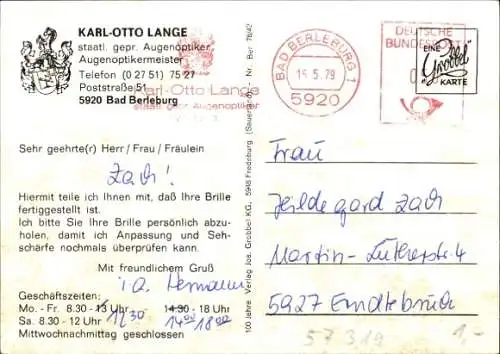 KARL-OTTO LANGE
staatl. gepr. Augenoptiker
Augenoptikermeister
Telefon (0 27 51) 75 27
Poststraße 51
5920 Bad Berleburg
Karl-Otto Lange
staatl. gepr. Augenoptiker
BAD BERLEBURG 1
5920
DEUTSCHE
BUNDESPOST
EINE
Grobbel
KARTE
Sehr geehrte(r) Herr / Frau / Fräulein
Zach!
Hiermit teile ich Ihnen mit, daß Ihre Brille
fertiggestellt ist.
Ich bitte Sie Ihre Brille persönlich abzu-
holen, damit ich Anpassung und Seh-
schärfe nochmals überprüfen kann.
Mit freundlichem Gruß
i A. Hermann
Geschäftszeiten:
Mo. - Fr. 8.30 - 13 Uhr 14.30 - 18 Uhr
Sa. 8.30 - 12 Uhr 12 30 14 00 18 00
Mittwochnachmittag geschlossen
100 Jahre. Verlag Jos. Grobbel KG, 5948 Fredeburg (Sauerland) - Nr. Ber 78/42
Frau
Hildegard Zach
Martin-Lutherstr. 4
5927 Erndtebrück
57 319
1,-